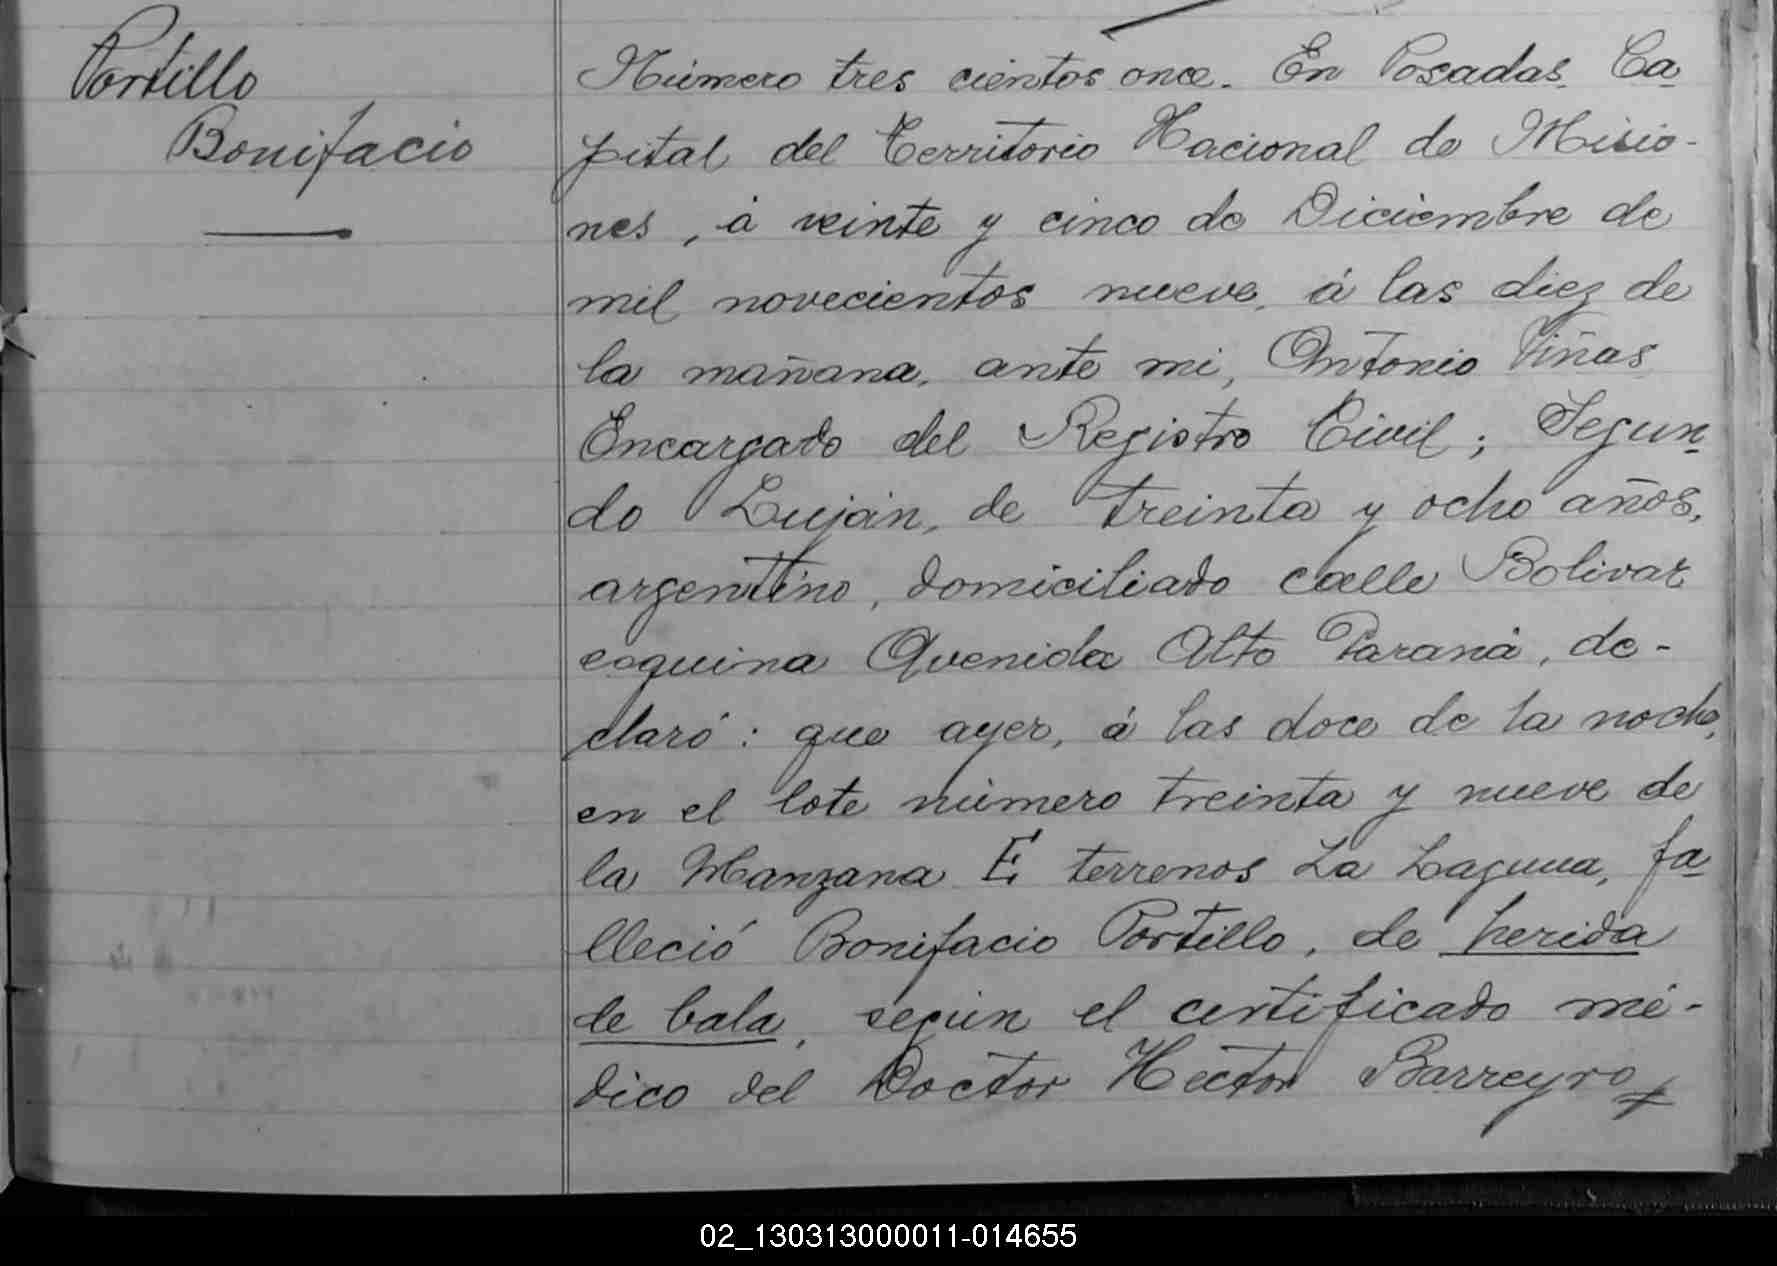 Portillo
Bonifacio
Número tres cientos once. En Posadas, Ca-
pital del Territorio Nacional de Misio-
nes, á veinte y cinco de Diciembre de
mil novecientos nueve, á las diez de
la mañana, ante mi, Antonio Viñas
Encargado del Registro Civil; Segun-
do Luján, de treinta y ocho años,
argentino, domiciliado calle Bolivar
esquina Avenida Alto Paraná, de-
claró: que ayer, á las doce de la noche,
en el lote número treinta y nueve de
la Manzana E. terrenos La Laguna, fa-
lleció Bonifacio Portillo, de herida
de bala, según el certificado mé-
dico del Doctor Hector Barreyro
02_130313000011-014655